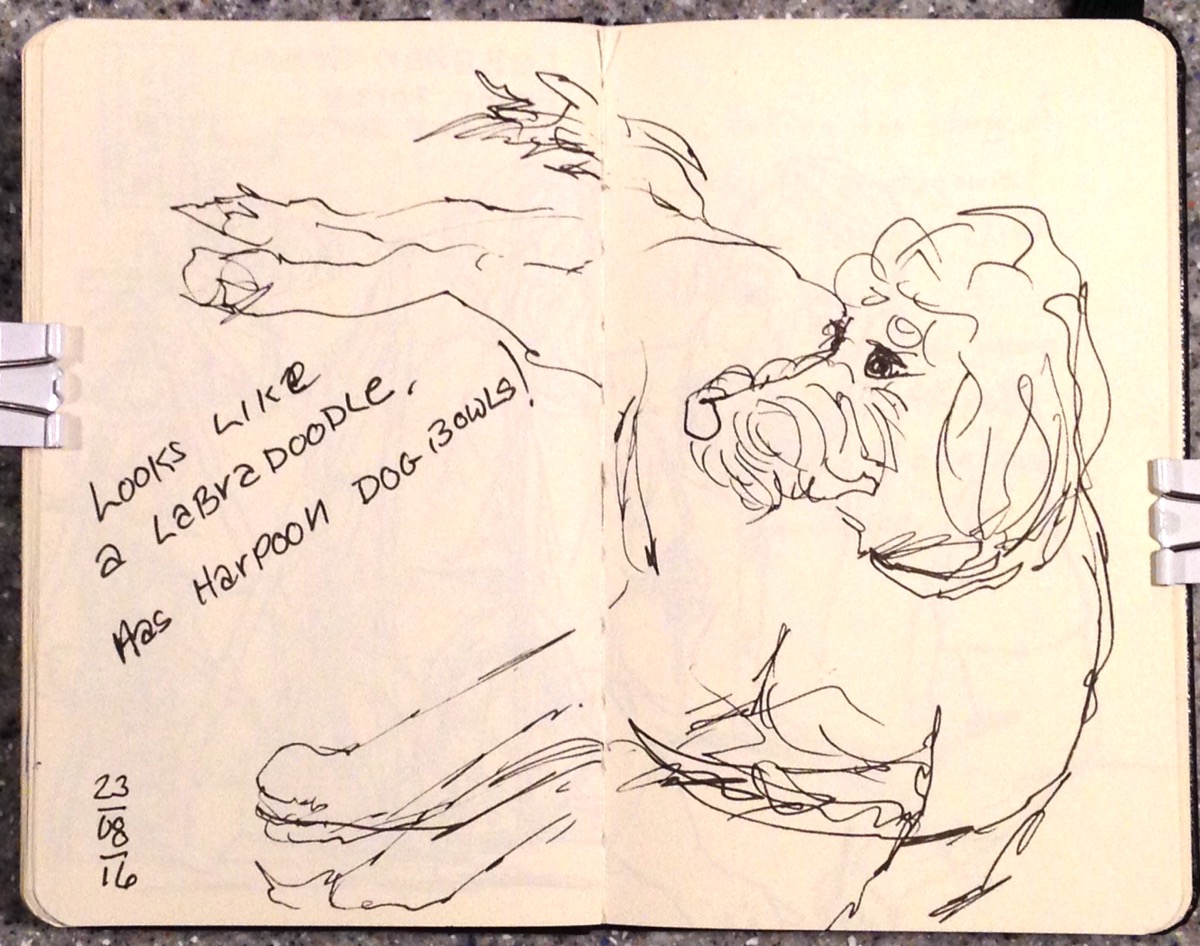 Looks Like
a Labradoodle.
Has Harpoon Dog Bowls!
23
08
16